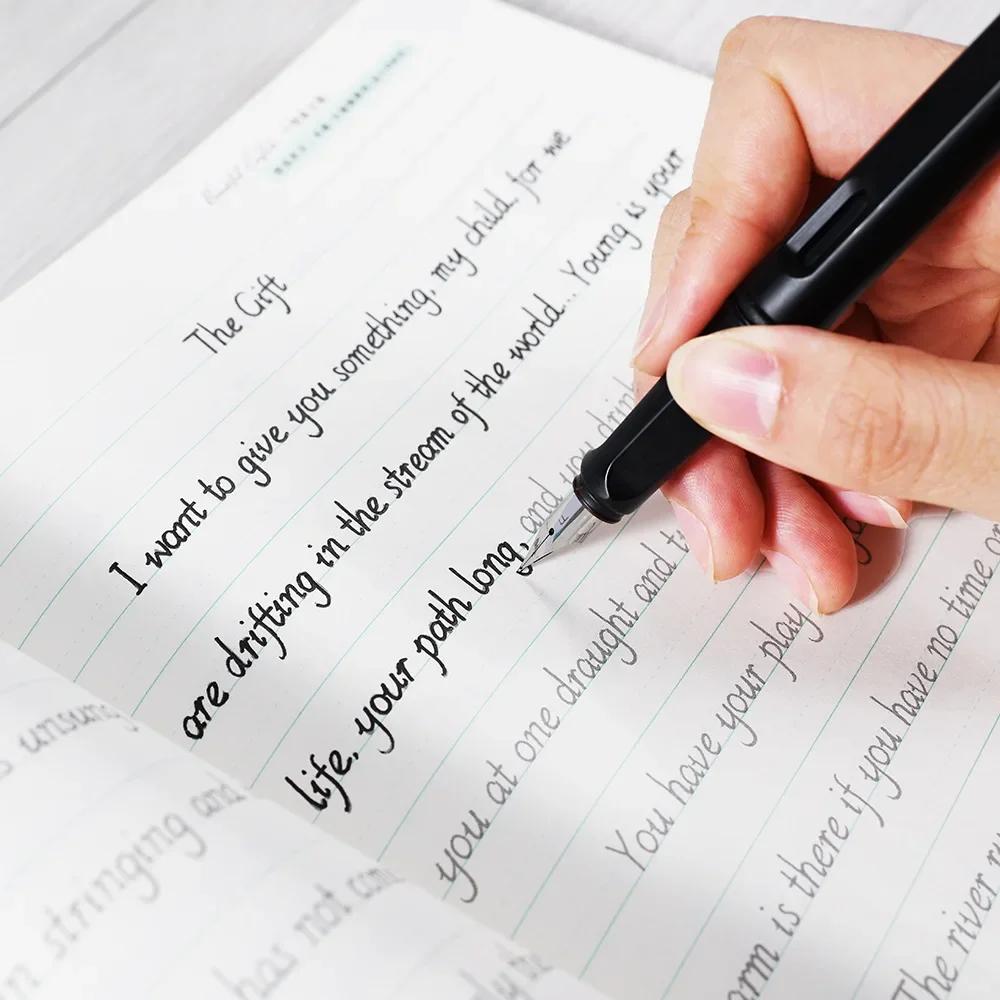 The Gift
I want to give you something, my child, for we
are drifting in the stream of the world... Young is your
life, your path long, and you drink
you at one draught and
You have your play
is there if you have no time
The river
unsung
stringing and
has not
F